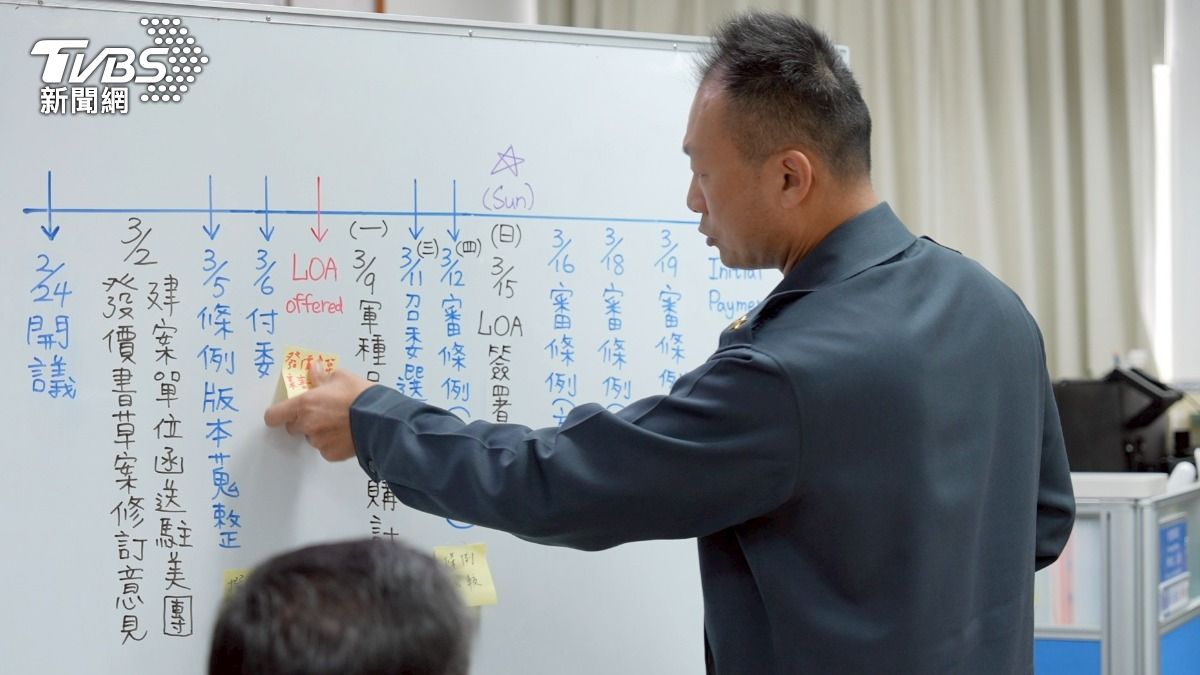 TVBS
新聞網
2/24 開議
3/2
建案單位函送駐美團
發價書草案修訂意見
3/5 條例版本蒐整
3/6 付委
LOA
offered
(一)
3/9 軍種
購計
(三)
3/11 召委選
(四)
3/12 審條例
(Sun)
(日)
3/15 LOA 簽署
3/16 審條例
3/18 審條例
3/19 審條例
Initial
Payment
條例